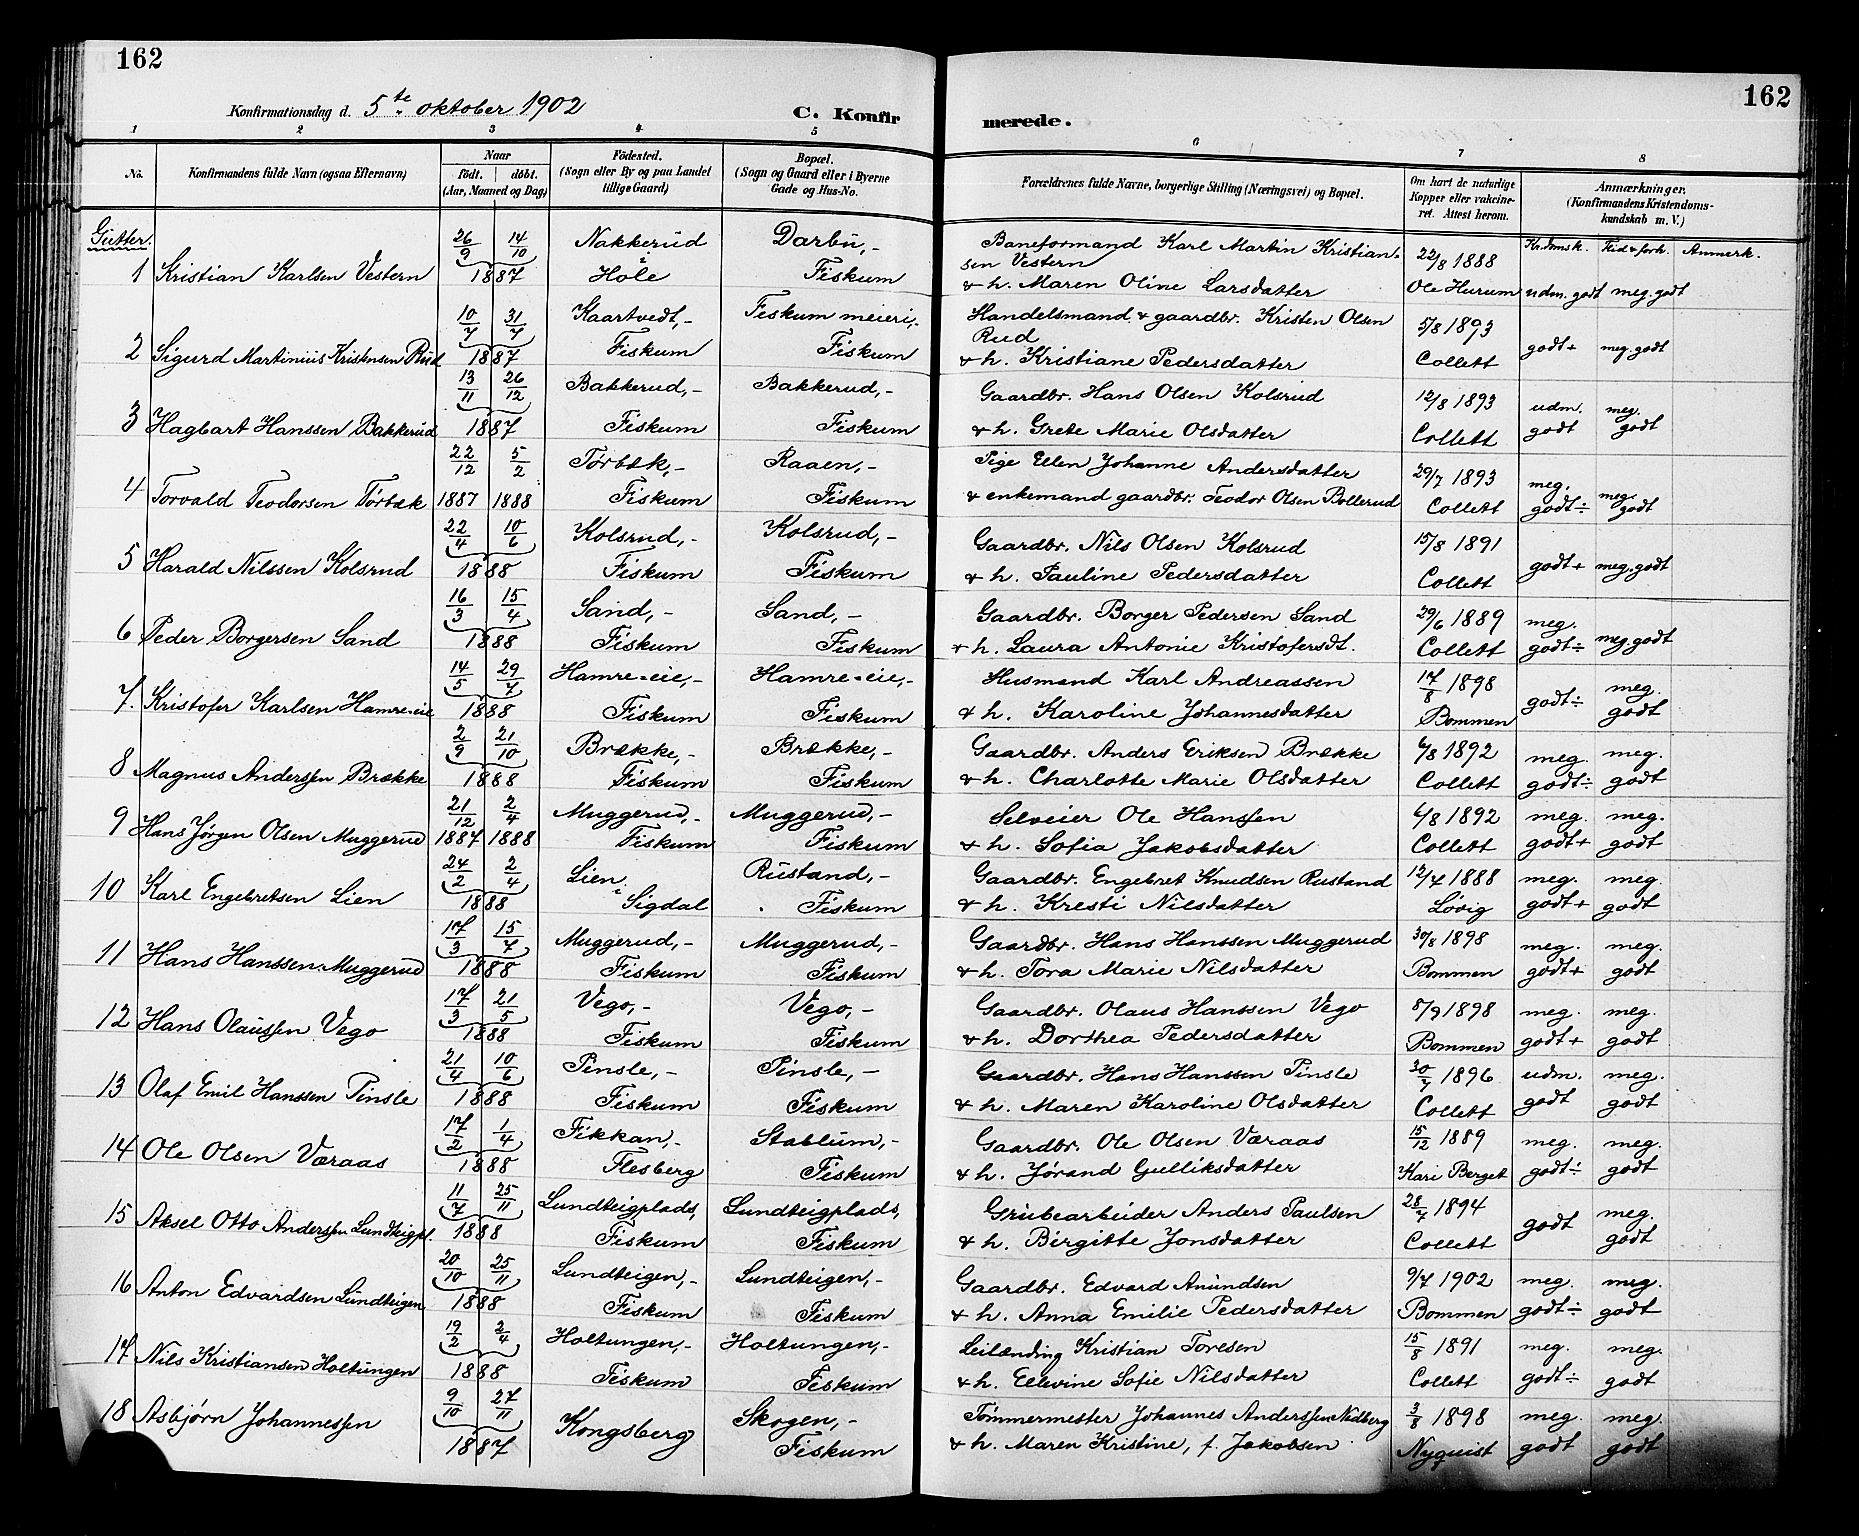 162
162
Konfirmationsdag d. 5te oktober 1902
C. Konfirmerede.
1 2 3 4 5 6 7 8
No.
Konfirmandens fulde Navn (ogsaa Efternavn)
Naar
födt. | döbt.
(Aar, Maaned og Dag)
Födested.
(Sogn eller By og paa Landet
tillige Gaard)
Bopæl.
(Sogn og Gaard eller i Byerne
Gade og Hus-No.
Forældrenes fulde Navne, borgerlige Stilling (Næringsvei) og Bopæl.
Om havt de naturlige
Kopper eller vakcine-
ret. Attest herom.
Anmærkninger.
(Konfirmandens Kristendoms-
kundskab m. V.)
Gutter.
Kr.dmsk. Flid & forh. Anmerk.
26/9 14/10 Nakkerud Darbu,- Baneformand Karl Martin Kristian-
sen Vestern 22/8 1888
1 Kristian Karlsen Vestern 1887 Hole Fiskum & h. Maren Oline Larsdatter Ole Hurum udm. godt meg. godt
10/7 31/7 Kaartvedt,- Fiskum meieri,- Handelsmand & gaardbr. Kristen Olsen
Rud 5/8 1893
2 Sigurd Martinius Kristensen Rud 1887 Fiskum Fiskum & h. Kristiane Pedersdatter Collett godt + meg. godt
13/11 26/12 Bakkerud,- Bakkerud,- Gaardbr. Hans Olsen Kolsrud 12/8 1893 udm. meg.
3 Hagbart Hanssen Bakkerud 1887 Fiskum Fiskum & h. Grete Marie Olsdatter Collett godt godt
22/12 5/2 Törbæk,- Raaen,- Pige Ellen Johanne Andersdatter 29/7 1893 meg. meg.
4 Torvald Teodorsen Törbæk 1887 1888 Fiskum Fiskum & enkemand gaardbr. Teodor Olsen Bollerud Collett godt ÷ godt
22/4 10/6 Kolsrud,- Kolsrud,- Gaardbr. Nils Olsen Kolsrud 15/8 1891
5 Harald Nilssen Kolsrud 1888 Fiskum Fiskum & h. Pauline Pedersdatter Collett godt + meg. godt
16/3 15/4 Sand,- Sand,- Gaardbr. Borger Pedersen Sand 29/6 1889 meg.
6 Peder Borgersen Sand 1888 Fiskum Fiskum & h. Laura Antonie Kristofersdt. Collett godt ÷ meg. godt
14/5 29/7 Hamre-eie,- Hamre-eie,- Husmand Karl Andreassen 17/8 1898 meg.
7. Kristofer Karlsen Hamre-eie 1888 Fiskum Fiskum & h. Karoline Johannesdatter Bommen godt ÷ godt
2/9 21/10 Brække,- Brække,- Gaardbr. Anders Eriksen Brække 6/8 1892 meg. meg.
8 Magnus Anderssen Brække 1888 Fiskum Fiskum & h. Charlotte Marie Olsdatter Collett godt ÷ godt
21/12 2/4 Muggerud,- Muggerud,- Selveier Ole Hanssen 6/8 1892 meg. meg.
9 Hans Jørgen Olsen Muggerud 1887 1888 Fiskum Fiskum & h. Sofia Jakobsdatter Collett godt + godt
24/2 2/4 Lien i Rustand,- Gaardbr. Engebret Knudsen Rustand 12/4 1888 meg. meg.
10 Karl Engebretsen Lien 1888 Sigdal Fiskum & h. Kresti Nilsdatter Løvig godt + godt
17/3 15/7 Muggerud,- Muggerud,- Gaardbr. Hans Hanssen Muggerud 30/8 1898 meg. meg.
11 Hans Hanssen Muggerud 1888 Fiskum Fiskum & h. Tora Marie Nilsdatter Bommen godt + godt
17/3 21/5 Vego,- Vego,- Gaardbr. Olaus Hanssen Vego 8/9 1898 meg. meg.
12 Hans Olaussen Vego 1888 Fiskum Fiskum & h. Dorthea Pedersdatter Bommen godt + godt
21/4 10/6 Pinsle,- Pinsle,- Gaardbr. Hans Hanssen Pinsle 30/7 1896 udm. meg.
13 Olaf Emil Hanssen Pinsle 1888 Fiskum Fiskum & h. Maren Karoline Olsdatter Collett godt godt
17/2 1/4 Fikkan,- Stablum,- Gaardbr. Ole Olsen Væraas 15/12 1889 meg. meg.
14 Ole Olsen Væraas 1888 Flesberg Fiskum & h. Jørand Gulliksdatter Kari Berget godt ÷ godt
11/7 25/11 Lundteigplads, Lundteigplads, Grubearbeider Anders Paulsen 28/7 1894 meg.
15 Aksel Otto Anderssen Lundteigpl. 1888 Fiskum Fiskum & h. Birgitte Jonsdatter Collett godt godt
20/10 25/11 Lundteigen,- Lundteigen,- Gaardbr. Edvard Amundsen 9/7 1902 meg. meg.
16 Anton Edvardsen Lundteigen 1888 Fiskum Fiskum & h. Anna Emilie Pedersdatter Bommen godt ÷ godt
19/2 2/4 Holtungen,- Holtungen,- Leilænding Kristian Toresen 15/8 1891 meg. meg.
17 Nils Kristiansen Holtungen 1888 Fiskum Fiskum & h. Ellevine Sofie Nilsdatter Collett godt ÷ godt
9/10 27/11 Kongsberg Skogen,- Tømmermester Johannes Anderssen Nedberg 3/8 1898 meg. meg.
18 Asbjørn Johannessen 1887 Fiskum & h. Maren Kristine, f. Jakobsen Nyquist godt godt